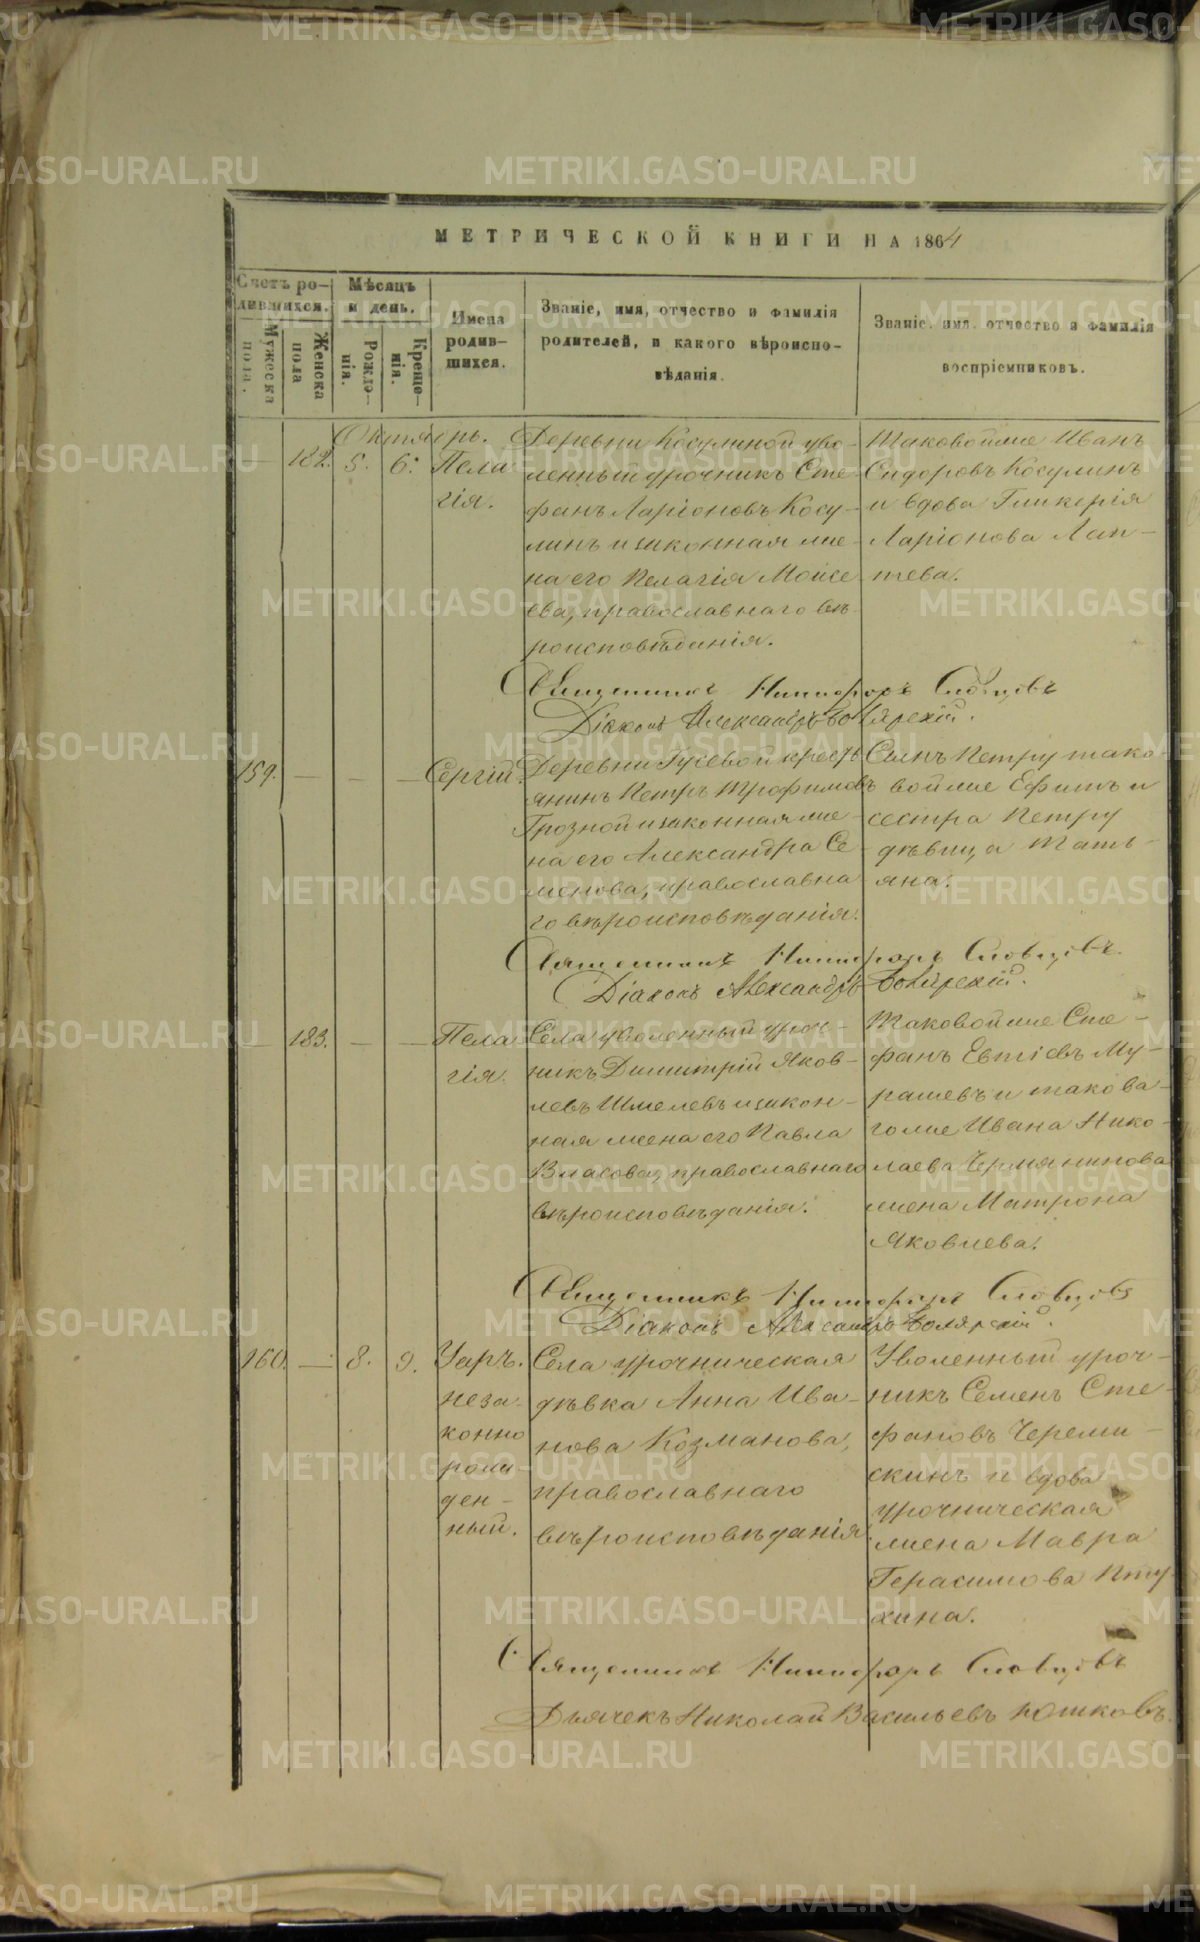 МЕТРИЧЕСКОЙ КНИГИ НА 1864
Счетъ ро-
дившихся.
Мужеска
пола.
Женска
пола
Мѣсяцъ
и день.
Рожде-
нія.
Креще-
нія.
Имена
родив-
шихся.
Званіе, имя, отчество и фамилія
родителей, и какого вѣроиспо-
вѣданія.
Званіе, имя, отчество и фамилія
воспріемниковъ.
Октябрь.
— 182. 5. 6. Пела
гія.
Деревни Косулиной уво-
ленный урочникъ Сте-
фанъ Ларіоновъ Косу-
линъ и законная же-
на его Пелагія Моисе
ева, православнаго вѣ-
роисповѣданія.
Таковой же Иванъ
Сидоровъ Косулинъ
и вдова Гликерія
Ларіонова Лап-
тева.
Священникъ Никифоръ Словцовъ
Діаконъ Александръ Боярскій.
159. — — — Сергій.
Деревни Гусевой кресть
янинъ Петръ Трофимовъ
Грозной и законная же-
на его Александра Се-
менова, православна
го вѣроисповѣданія.
Сынъ Петру тако-
вой же Ефимъ и
сестра Петру
дѣвица Тать-
яна.
Священникъ Никифоръ Словцовъ.
Діаконъ Александръ Боярскій.
— 183. — — Пела
гія.
Села уволенный уроч-
никъ Димитрій Яков-
левъ Шмелевъ и закон-
ная жена его Павла
Власова, православнаго
вѣроисповѣданія.
Таковой же Сте-
фанъ Евтіевъ Му-
рашевъ и такова-
го же Ивана Нико-
лаева Чермянинова
жена Матрона
Яковлева.
Священникъ Никифоръ Словцовъ
Діаконъ Александръ Боярскій.
160. — 8. 9. Уаръ.
неза-
конно
рож-
ден-
ный.
Села урочническая
дѣвка Анна Ива-
нова Козманова,
православнаго
вѣроисповѣданія
Уволенный уроч-
никъ Семенъ Сте-
фановъ Череми-
скинъ и вдова
урочническая
жена Мавра
Герасимова Пту-
хина.
Священникъ Никифоръ Словцовъ
Дьячекъ Николай Васильевъ Юшковъ.
METRIKI.GASO-URAL.RU